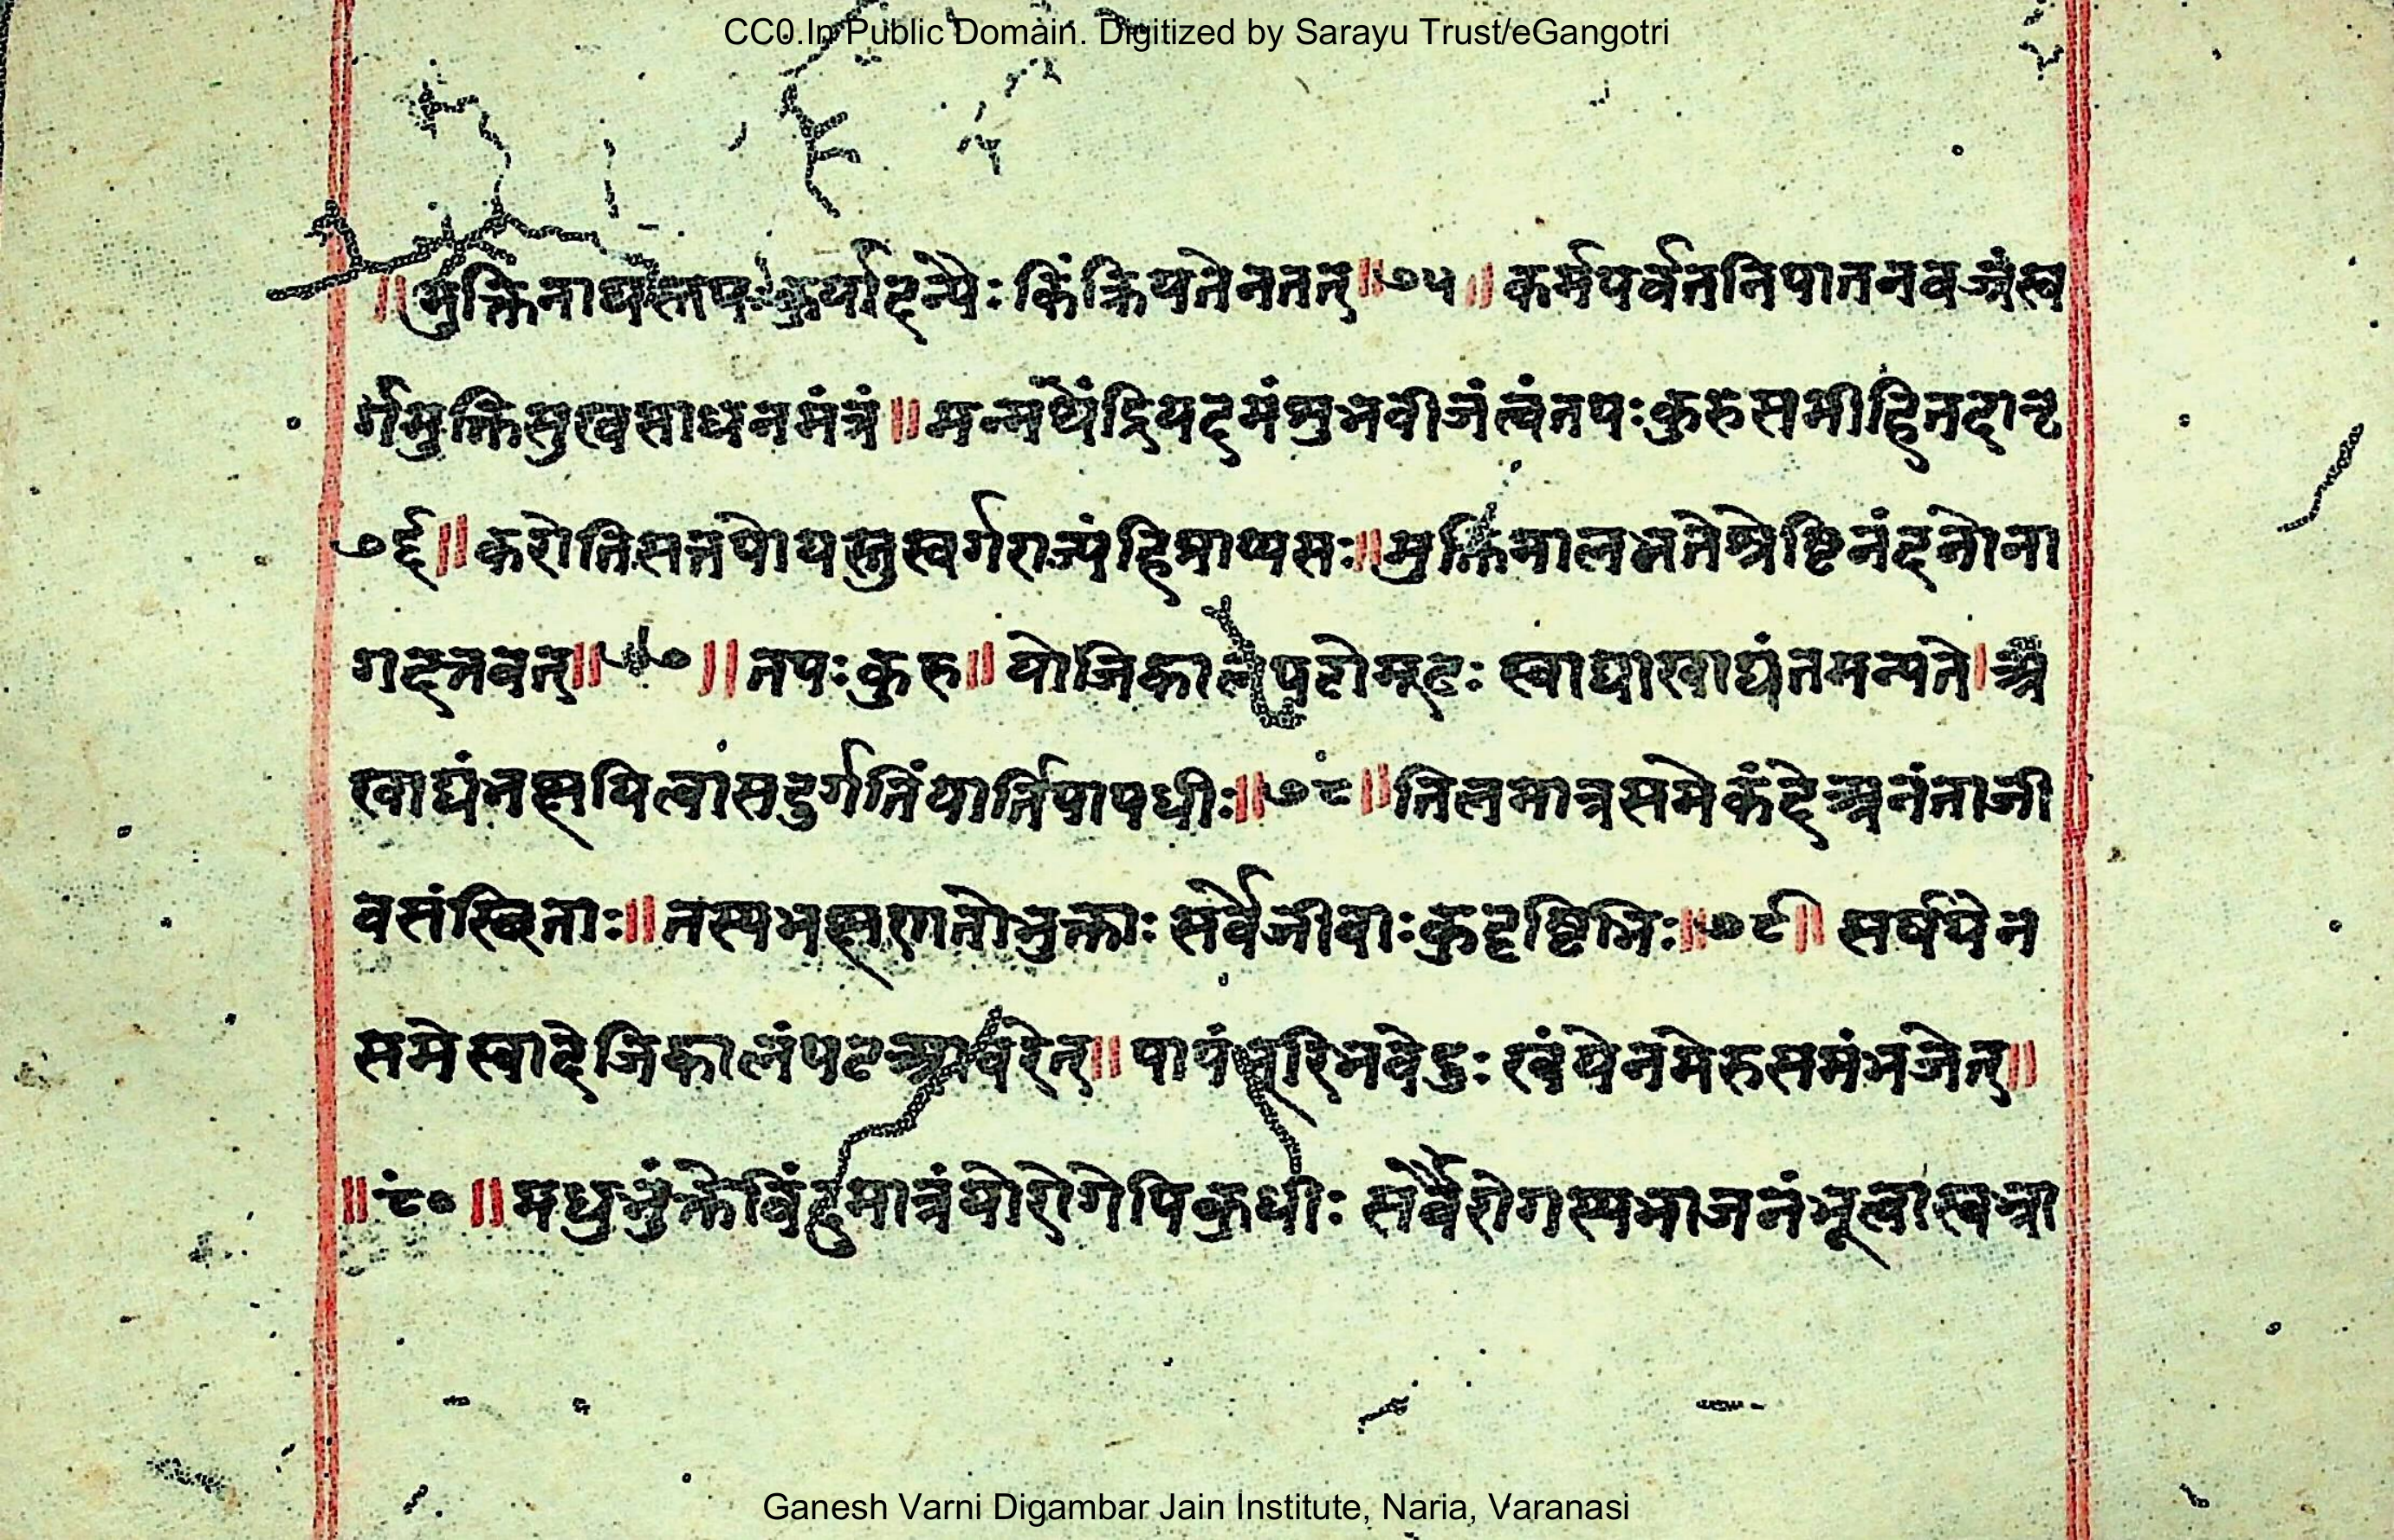 CC0.In Public Domain. Digitized by Sarayu Trust/eGangotri
॥मुक्तिनाथस्तपःकुर्यादन्यैः किं क्रियतेनतत्॥७५॥ कर्मपर्वतनिपातनवज्रंस्व
र्गमुक्तिसुखसाधनमंत्रं॥मन्मथेंद्रियदमंशुभवीजंत्वंतपःकुरुसमीहितदातृ
७६॥करोतिसत्तपोयस्तुस्वर्गराज्यंहिप्राप्यसः॥मुक्तिमालभतेश्रेष्टिनंदनोना
गदत्तवत्॥७७॥तपःकुरु॥ योजिकालंपटोमूढः स्वाद्याखाद्यंनमन्यते।अ
खाद्यंभक्षयित्वासदुर्गतिंयातिपापधीः॥७८॥तिलमात्रसमेकंदेअनंताजी
वसंस्थिताः॥तस्यभक्षणतोभुक्ताः सर्वेजीवाःकुदृष्टिभिः॥७९॥ सर्षपेन
समेस्वादेजिकालंपट पापंभूरिभवेदुः खंयेनमेरुसमंभजेत्॥
॥८०॥मधुभुंक्तेविंदुमात्रंयोरोगेपिकुधीः सर्वरोगस्यभाजनंभूत्वास्वभ्रा
Ganesh Varni Digambar Jain Institute, Naria, Varanasi